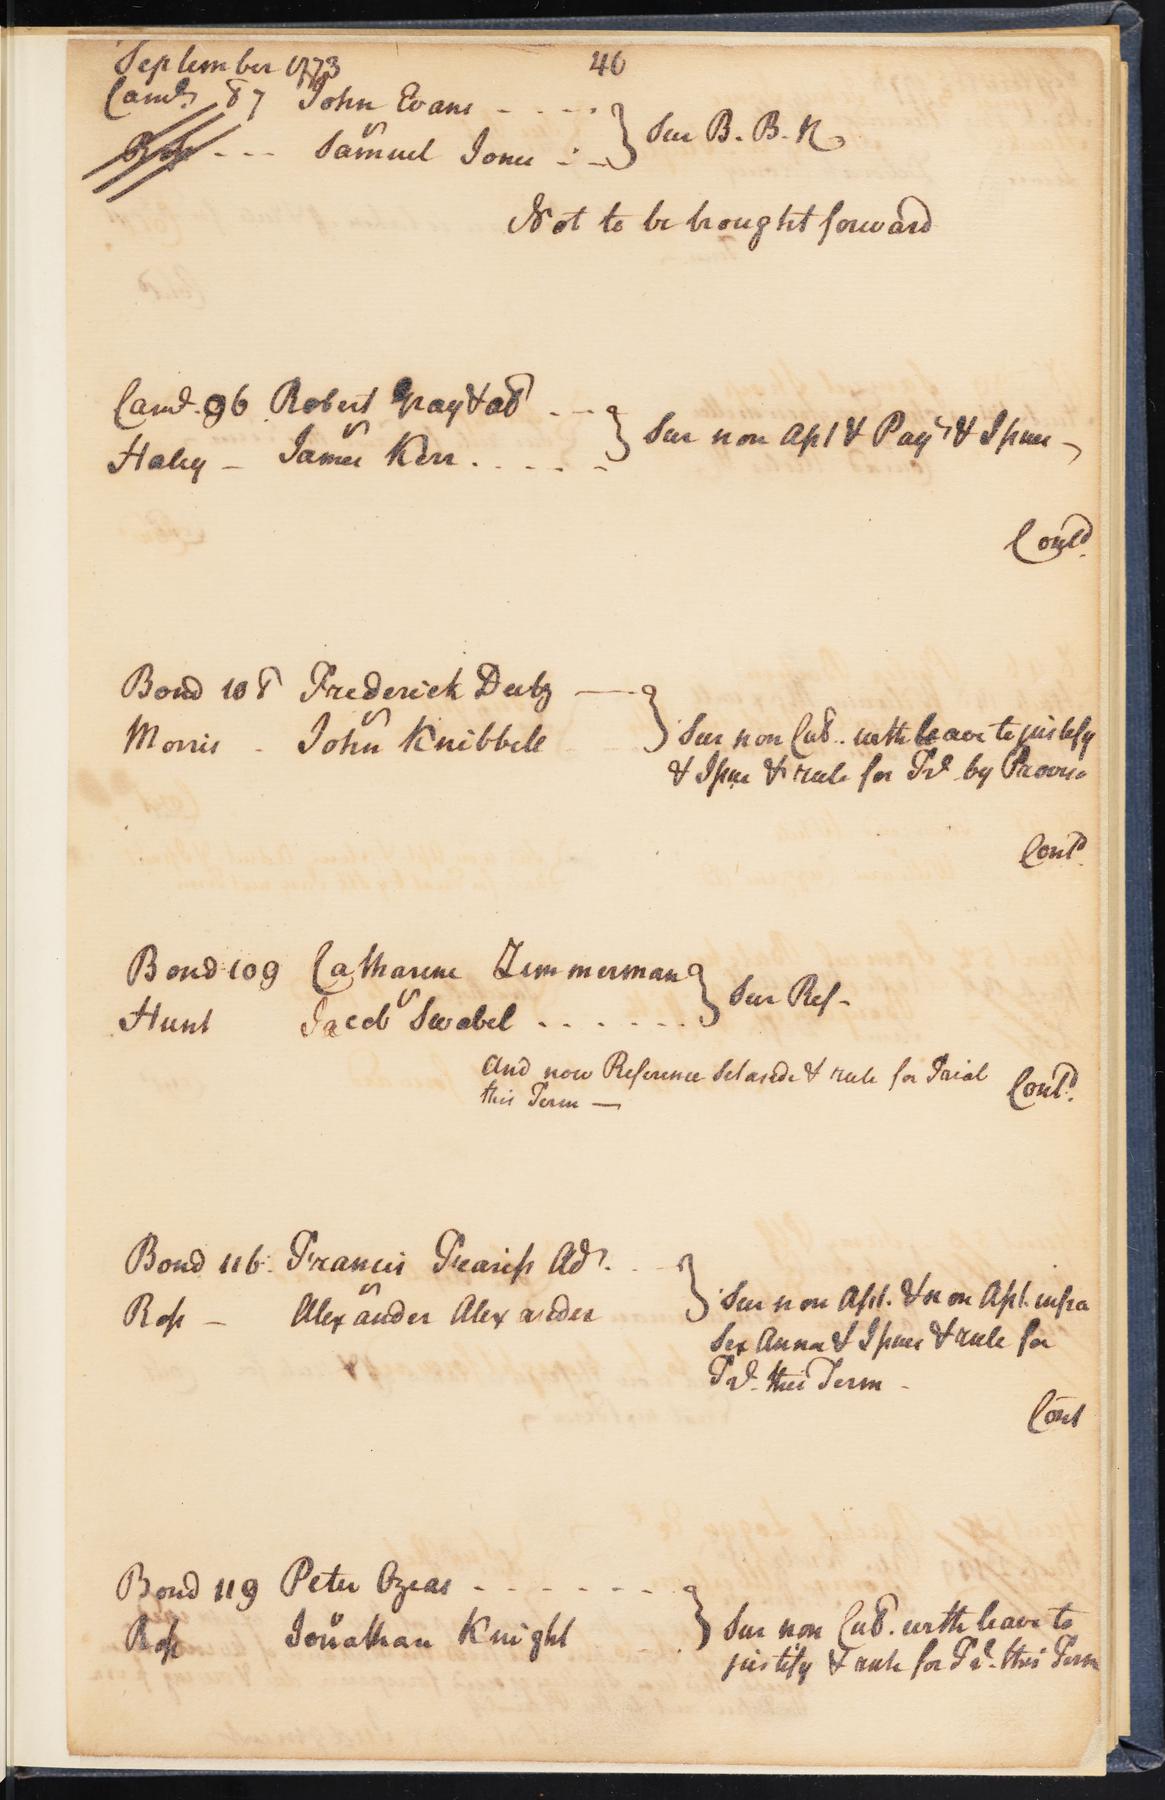 September 1773 40
Cawd. 87 John Evans - - - -
Ross - - - v Samuel Jones - - } Sur B. B. R
Not to be brought forward
Cawd. 96 Robert Gray & al - - -
Haley - v James Kerr . . . . - } Sur non Apt & Payt & Issue
Contd.
Bond 108 Frederick Deitz -
Morris - v John Knibbele } Sur non Cul. with leave to justify
& Issue & rule for Trl by Proviso
Contd.
Bond 109 Catharine Zimmerman
Hunt v Jacob Swobel . . . . . . } Sur Ref -
And now Reference Set aside & rule for Trial
this Term — Contd.
Bond 116. Francis Trariss Adr. . -
Ross - v Alexander Alexander } Sur non Apt. & non Apt. infra
Sex Anna & Issues & rule for
Trl. this Term -
Cont
Bond 119 Peter Ozeas - - - - - - -
Ross v Jonathan Knight } Sur non Cul. with leave to
justify & rule for Trl. this Term